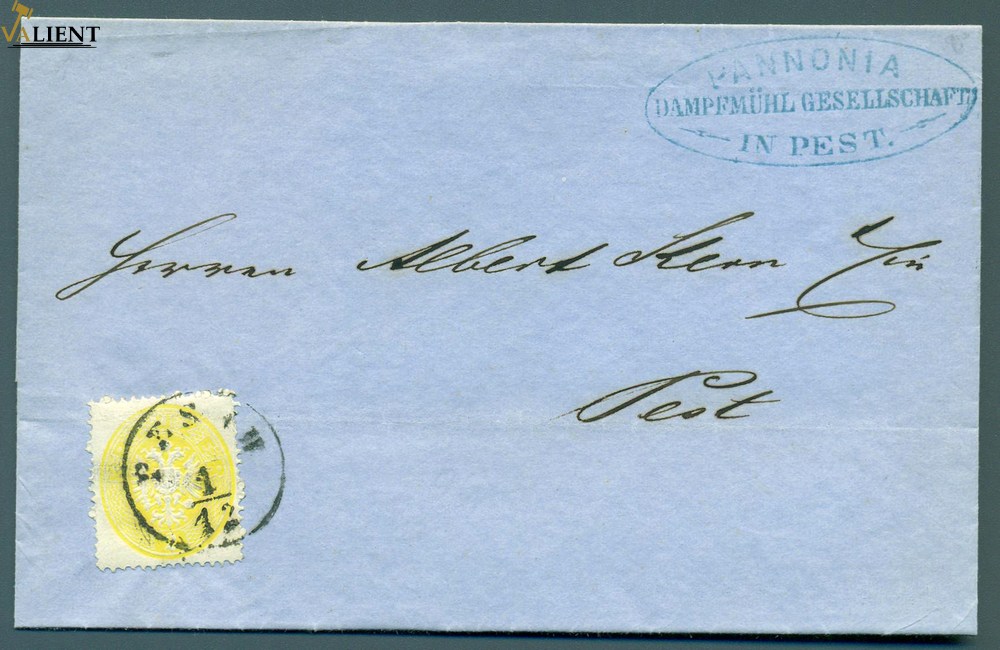 VALIENT
PANNONIA
DAMPFMÜHL GESELLSCHAFT
IN PEST.
Herren Albert Stern
Pest
1
12